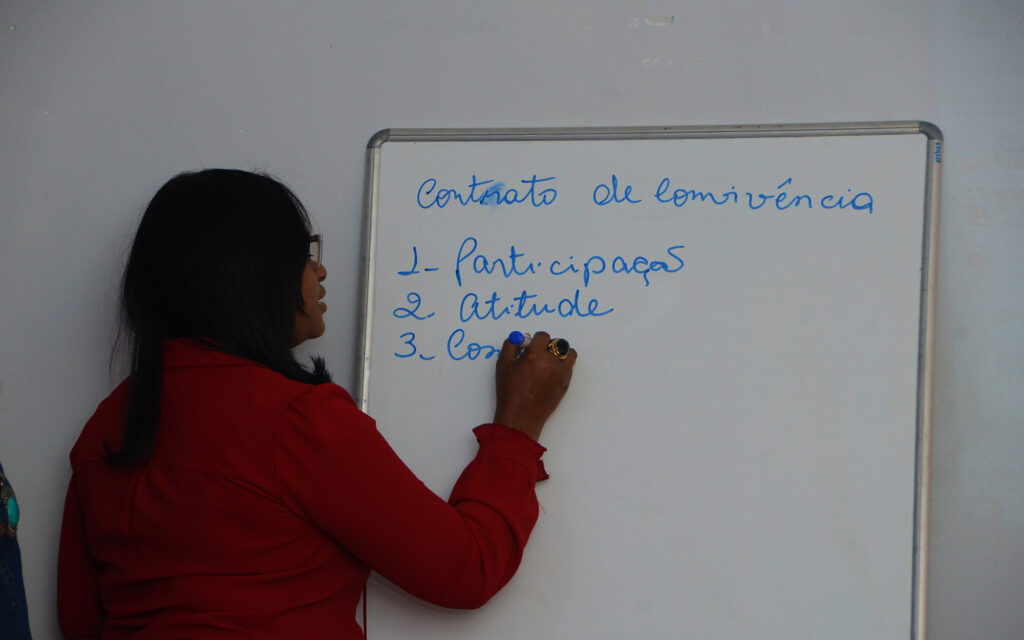 Contrato de Convivência
1- Participação
2. Atitude
3-